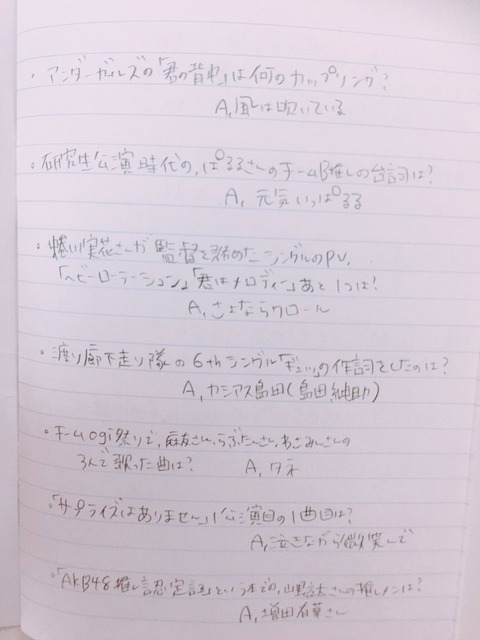 ・アンダーガールズの「君の背中」は何のカップリング?
A, 風は吹いている
・研究生公演時代の、ぱるるさんのチームB推しの台詞は?
A, 元気いっぱるる
・蜷川実花さんが監督を務めたシングルのPV,
「ヘビーローテーション」「君はメロディー」あと1つは?
A, さよならクロール
・渡り廊下走り隊の6thシングル「ギュッ」の作詞をしたのは?
A, カシアス島田(島田紳助)
・チームogi祭りで、麻友さん、らぶたんさん、あさみんさんの
3人で歌った曲は? A, タネ
・「サプライズはありません」1公演目の1曲目は?
A, 泣きながら微笑んで
・「AKB48推し認定証」という本での, 山里亮太さんの推しメンは?
A, 増田有華さん